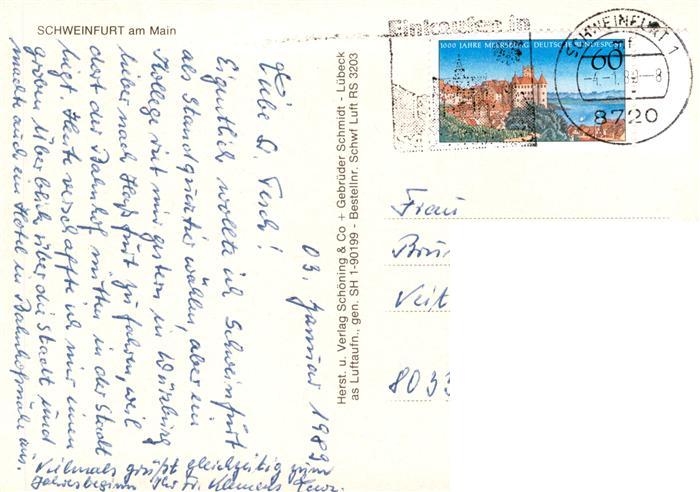 SCHWEINFURT am Main
03. Januar 1989
Liebe D. Tesch!
Eigentlich wollte ich Schweinfurt
als Standquartier wählen, aber ein
Kollege riet mir gestern in Würzburg
lieber nach Haßfurt zu fahren, weil
dort der Bahnhof mitten in der Stadt
liegt. Heute verschaffte ich mir einen
groben Überblick über die Stadt und
machte auch ein Hotel in Bahnhofsnähe aus.
Vielmals grüßt gleichzeitig zum
Jahresbeginn Ihr Dr. Klemens
Herst. u. Verlag Schöning & Co + Gebrüder Schmidt - Lübeck
as Luftaufn., gen. SH 1-90199 - Bestellnr. Schwf Luft RS 3203
Einkaufen in
1000 JAHRE MEERSBURG DEUTSCHE BUNDESPOST
60
SCHWEINFURT 1
-4.-1.89.-8
8720
Frau
Veit
8033